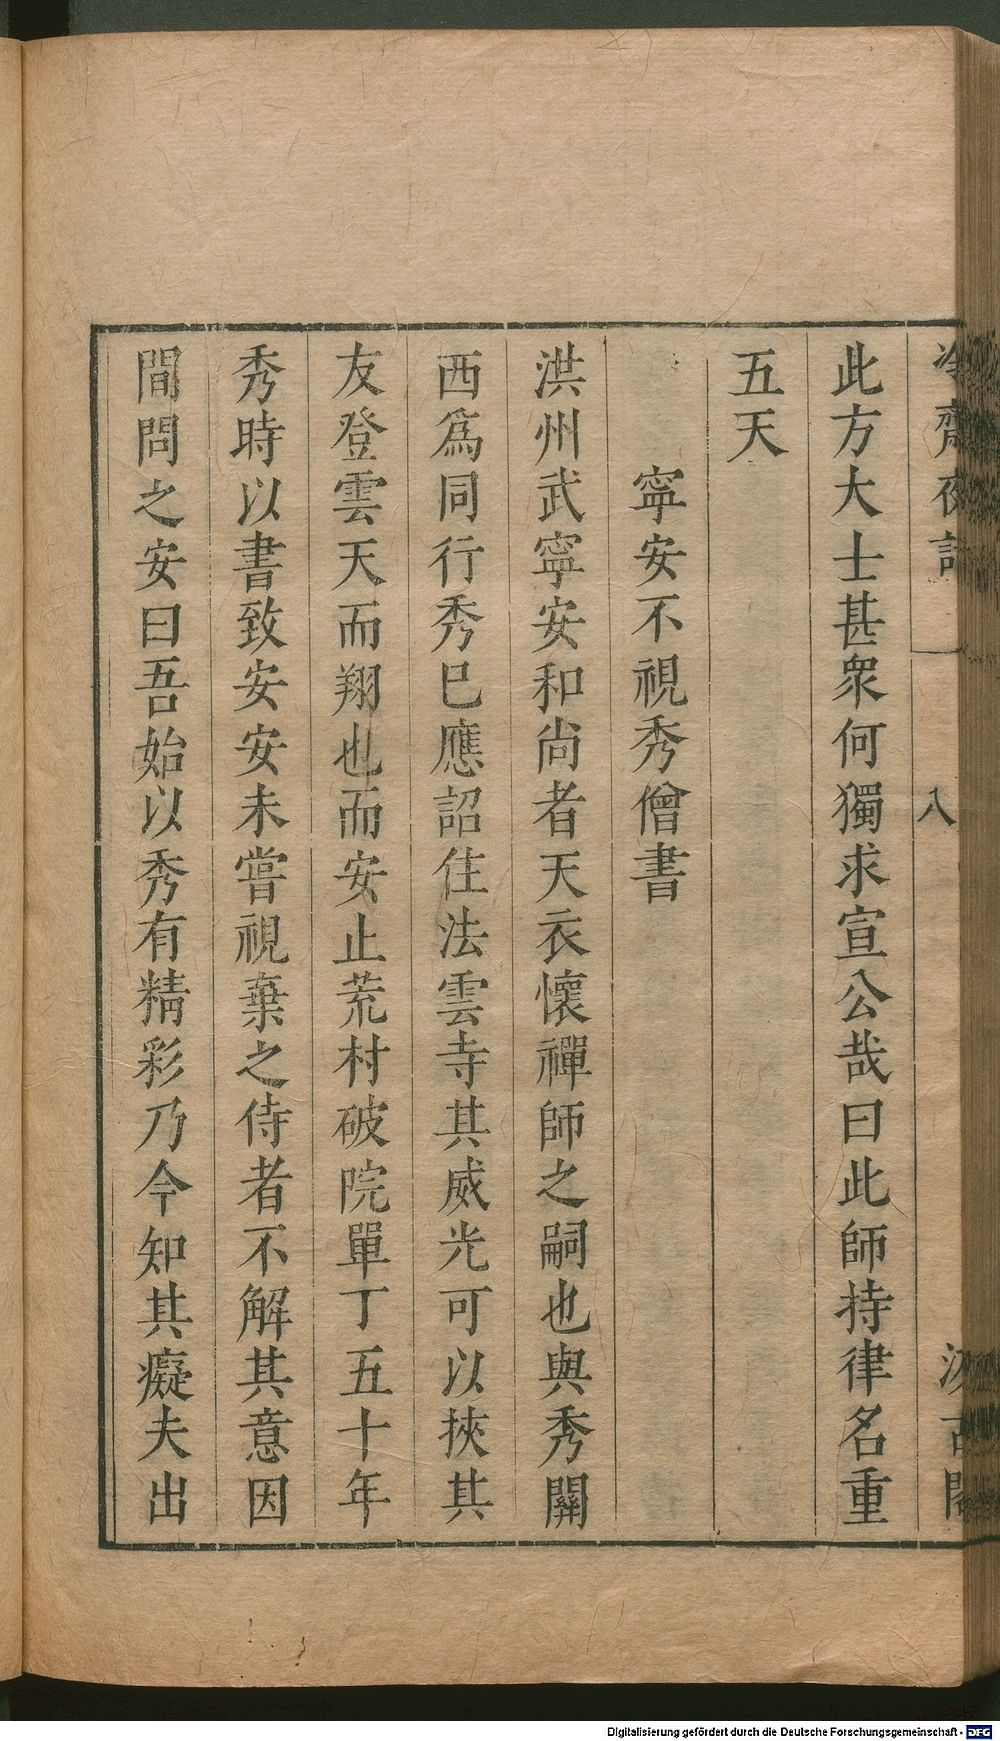 冷齋夜話
八
汲古閣
此方大士甚衆何獨求宣公哉曰此師持律名重
五天
寧安不視秀僧書
洪州武寧安和尚者天衣懷禪師之嗣也與秀關
西爲同行秀巳應詔住法雲寺其威光可以挾其
友登雲天而翔也而安止荒村破院單丁五十年
秀時以書致安安未嘗視棄之侍者不解其意因
間問之安曰吾始以秀有精彩乃今知其癡夫出
Digitalisierung gefördert durch die Deutsche Forschungsgemeinschaft - DFG